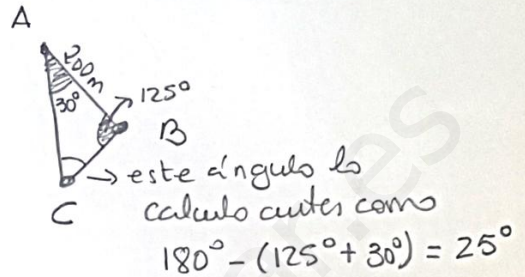 A
200m
30°
125°
B
→ este ángulo lo
C
calculo antes como
180° - (125° + 30°) = 25°